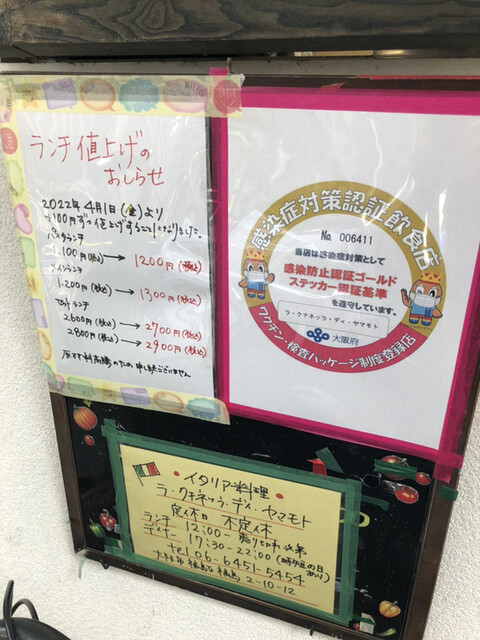 ランチ値上げの
おしらせ
2022年4月1日(金)より
100円ずつ値上げすることになりました。
パスタランチ
1,100円(税込) → 1200円(税込)
メインランチ
1,200円(税込) → 1300円(税込)
セットランチ
2600円(税込) → 2700円(税込)
2800円(税込) → 2900円(税込)
原材料高騰のため 申し訳ございません
感染症対策認証飲食店
No. 006411
当店は感染症対策として
感染防止認証ゴールド
ステッカー認証基準
を遵守しています。
ラ・クチネッラ・ディ・ヤマモト
大阪府
ワクチン・検査パッケージ制度登録店
・イタリア料理・
ラ・クチネッラ・ディ・ヤマモト
定休日 不定休
ランチ 12:00-
ディナー 17:30-22:00(時短の日あり)
tel 06-6451-5454
大阪市福島区福島 2-10-12